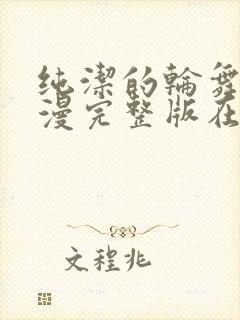 纯潔的輪舞
漫完整版在
文程兆